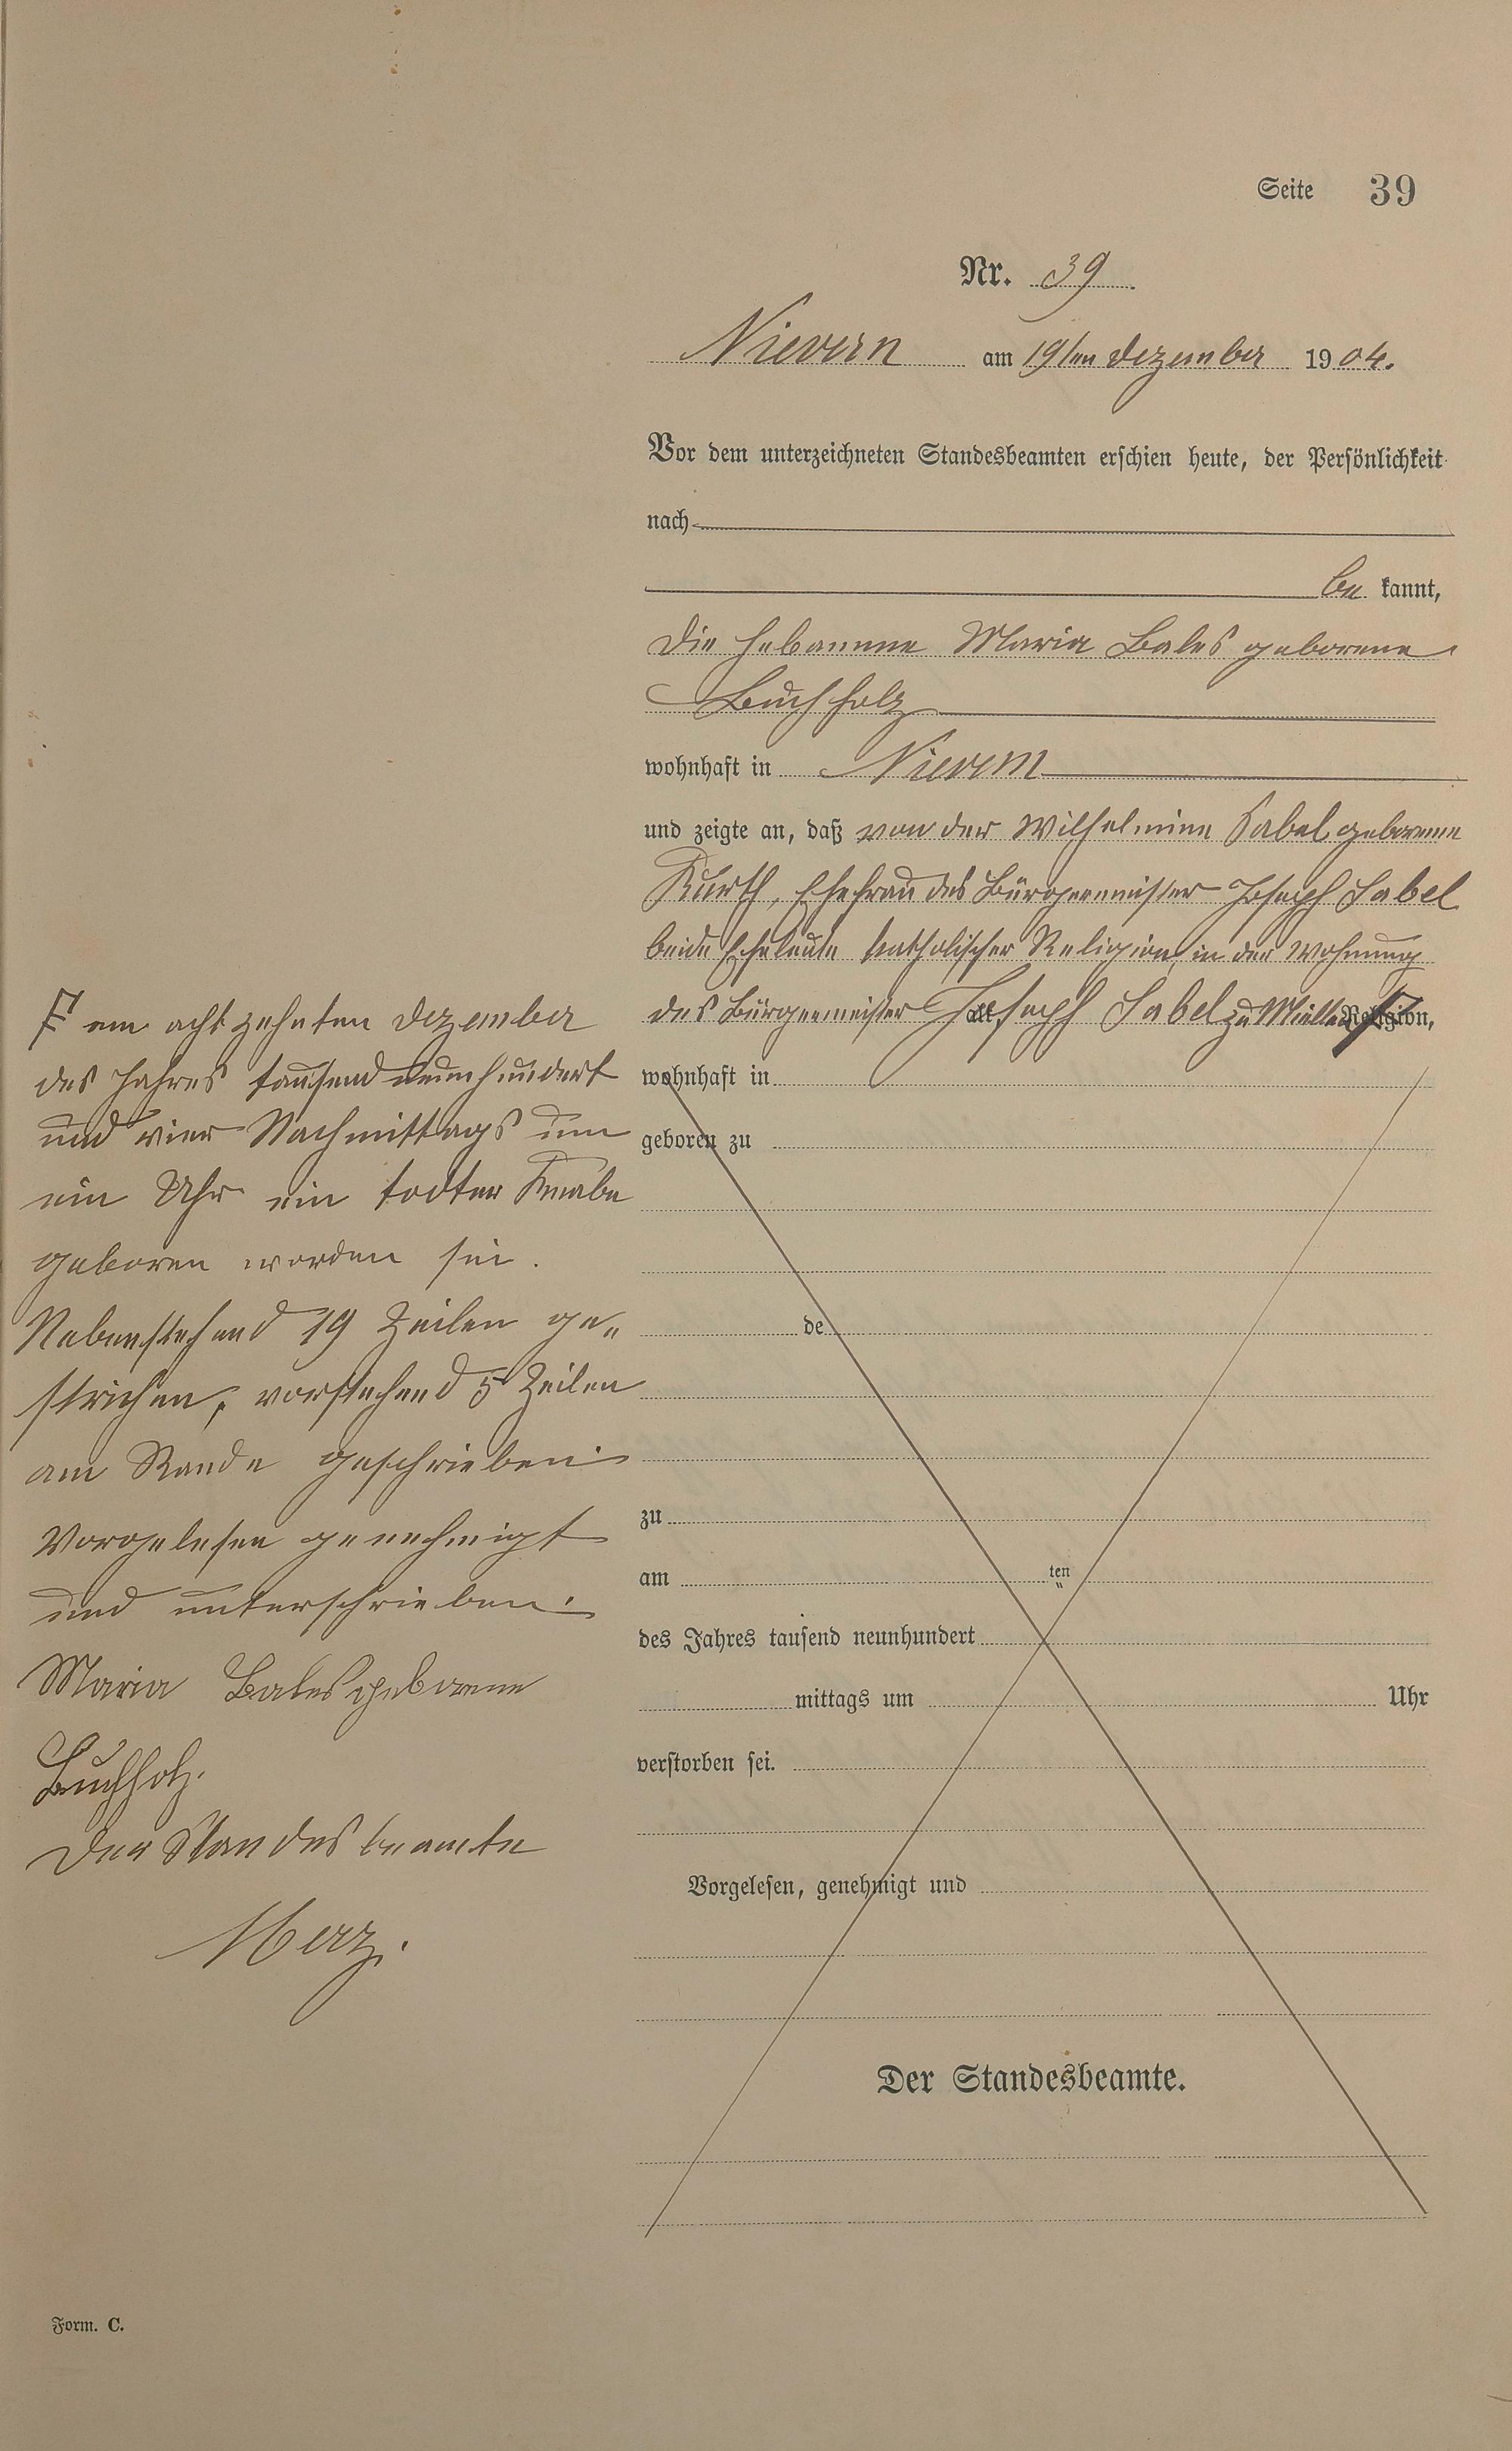 Seite 39
Nr. 39
Nievern am 19ten Dezember 1904.
Vor dem unterzeichneten Standesbeamten erschien heute, der Persönlichkeit
nach
be kannt,
die Hebamme Maria Bales geborene
Buchholz
wohnhaft in Nievern
und zeigte an, daß von der Wilhelmine Sabel geborenen
Kurth, Ehefrau des Bürgermeister Joseph Sabel
beide Eheleute katholischer Religion, in der Wohnung
des Bürgermeister Joseph Sabel zu alt Religion,
wohnhaft in
geboren zu
de
zu
am ten
des Jahres tausend neunhundert
mittags um Uhr
verstorben sei.
Vorgelesen, genehmigt und
Der Standesbeamte.
am achtzehnten Dezember
des Jahres tausend neunhundert
und vier Nachmittags um
ein Uhr ein todter Knabe
geboren worden sei.
Nebenstehend 19 Zeilen ge„
strichen, vorstehend 5 Zeilen
am Rande geschrieben.
Vorgelesen genehmigt
und unterschrieben.
Maria Bales geborene
Buchholz.
Der Standesbeamte
Merz.
Form. C.